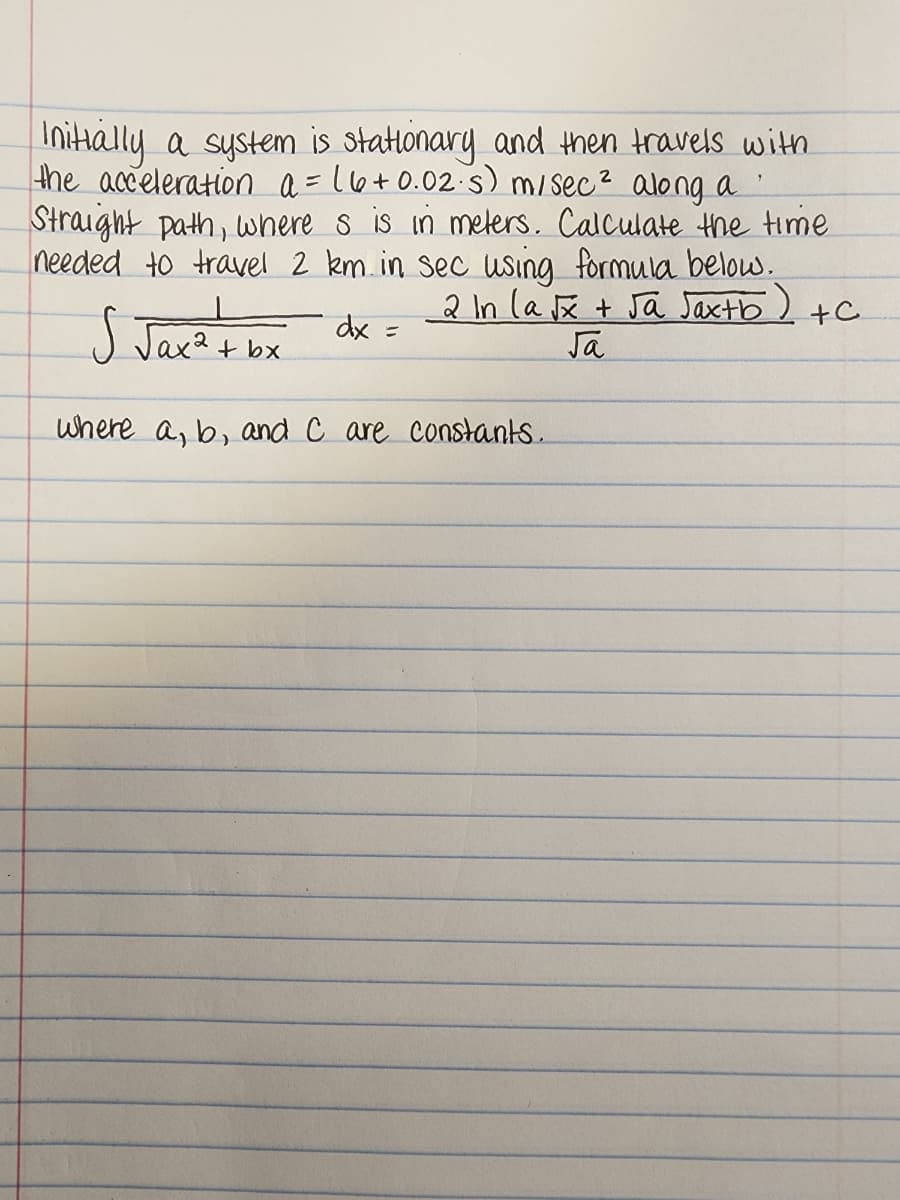 Initially a system is stationary and then travels with
the acceleration a = (6+ 0.02·s) m/sec² along a
straight path, where s is in meters. Calculate the time
needed to travel 2 km in sec using formula below.
∫ 1/√(ax² + bx) dx = 2 ln (a√x + √a √(ax+b))/√a + C
where a, b, and C are constants.